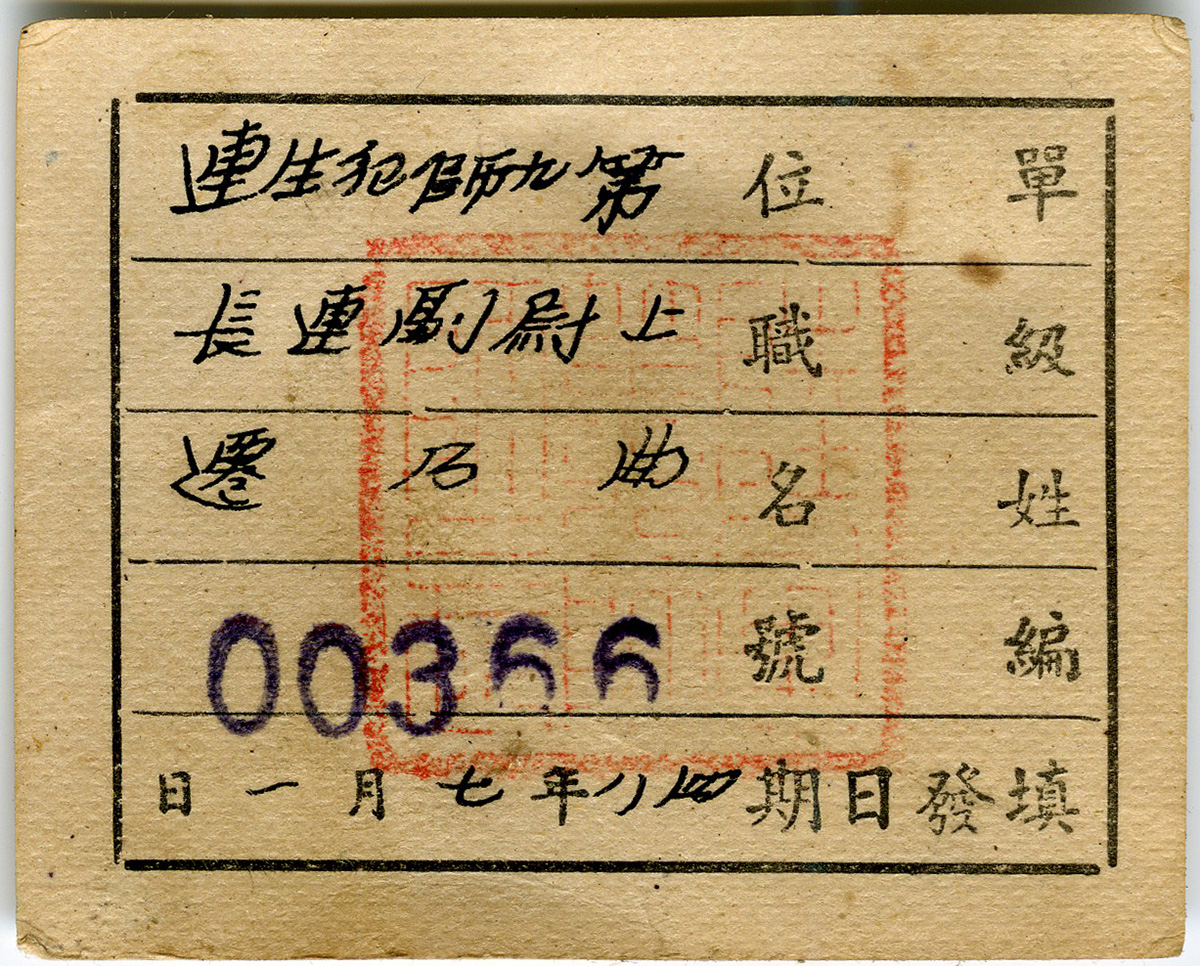 單位 第九師犯生連
級職 上尉副連長
姓名 曲乃遷
編號 00366
填發日期 四八年七月一日